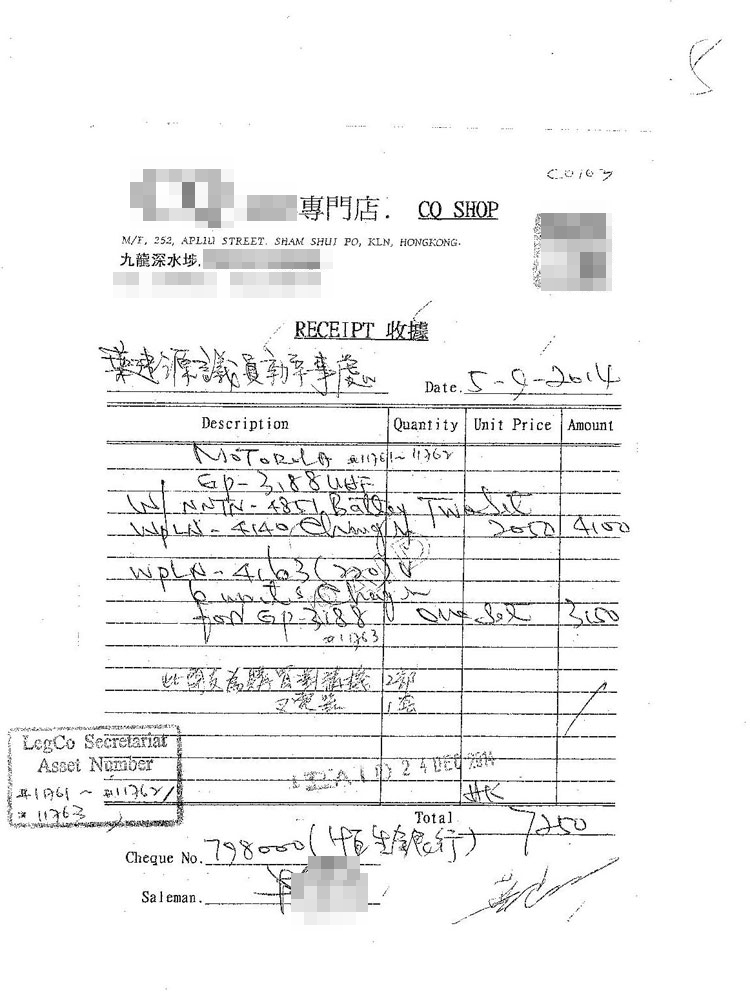 C0163
專門店. CQ SHOP
M/F, 252, APLIU STREET, SHAM SHUI PO, KLN, HONGKONG.
九龍深水埗,
RECEIPT 收據
葉建源議員辦事處
Date. 5-9-2014
Description Quantity Unit Price Amount
MOTOROLA #11761~11762
GP-3188 UHF
W/ NNTN-4851 Battery Two Set
WPLN-4140 2050 4100
WPLN-4163 (220)V
6 units
for GP-3188 One Set 3150
#11763
此單支為購買對講機 2部
叉電器 1套
LegCo Secretariat
Asset Number
#11761 ~ #11762/
#11763
PAID 24 DEC 2014
HK
Total 7250
Cheque No. 798000 (恒生銀行)
Saleman.